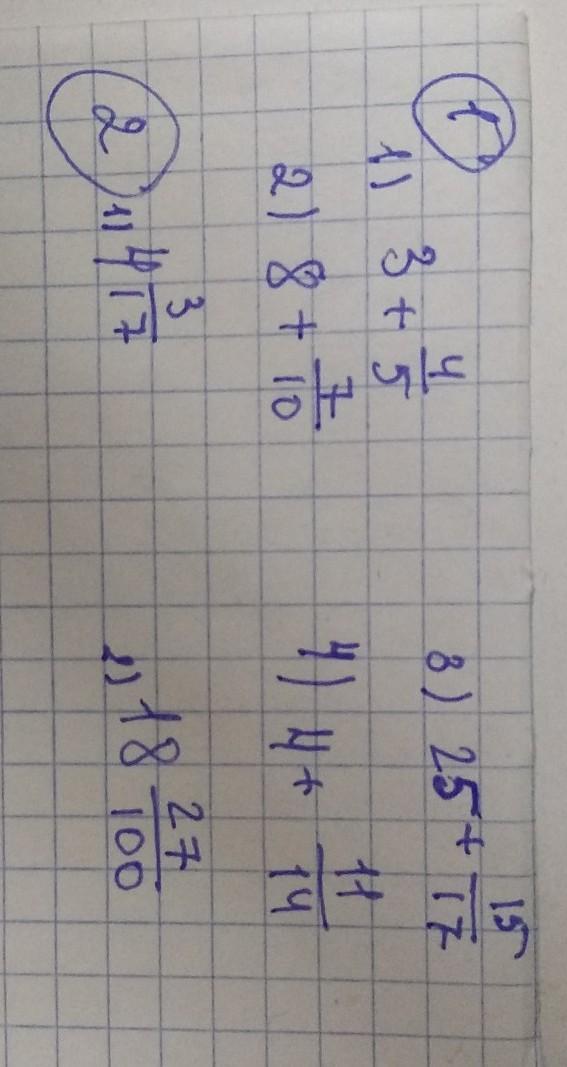 1
1) 3 + 4/5
3) 25 + 15/17
2) 8 + 7/10
4) 4 + 11/14
2
1) 4 3/17
2) 18 27/100